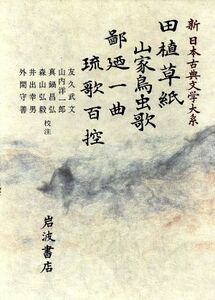 新日本古典文学大系
田植草紙
山家鳥虫歌
鄙廼一曲
琉歌百控
友久武文
山内洋一郎
真鍋昌弘
森山弘毅
井出幸男
外間守善
校注
岩波書店